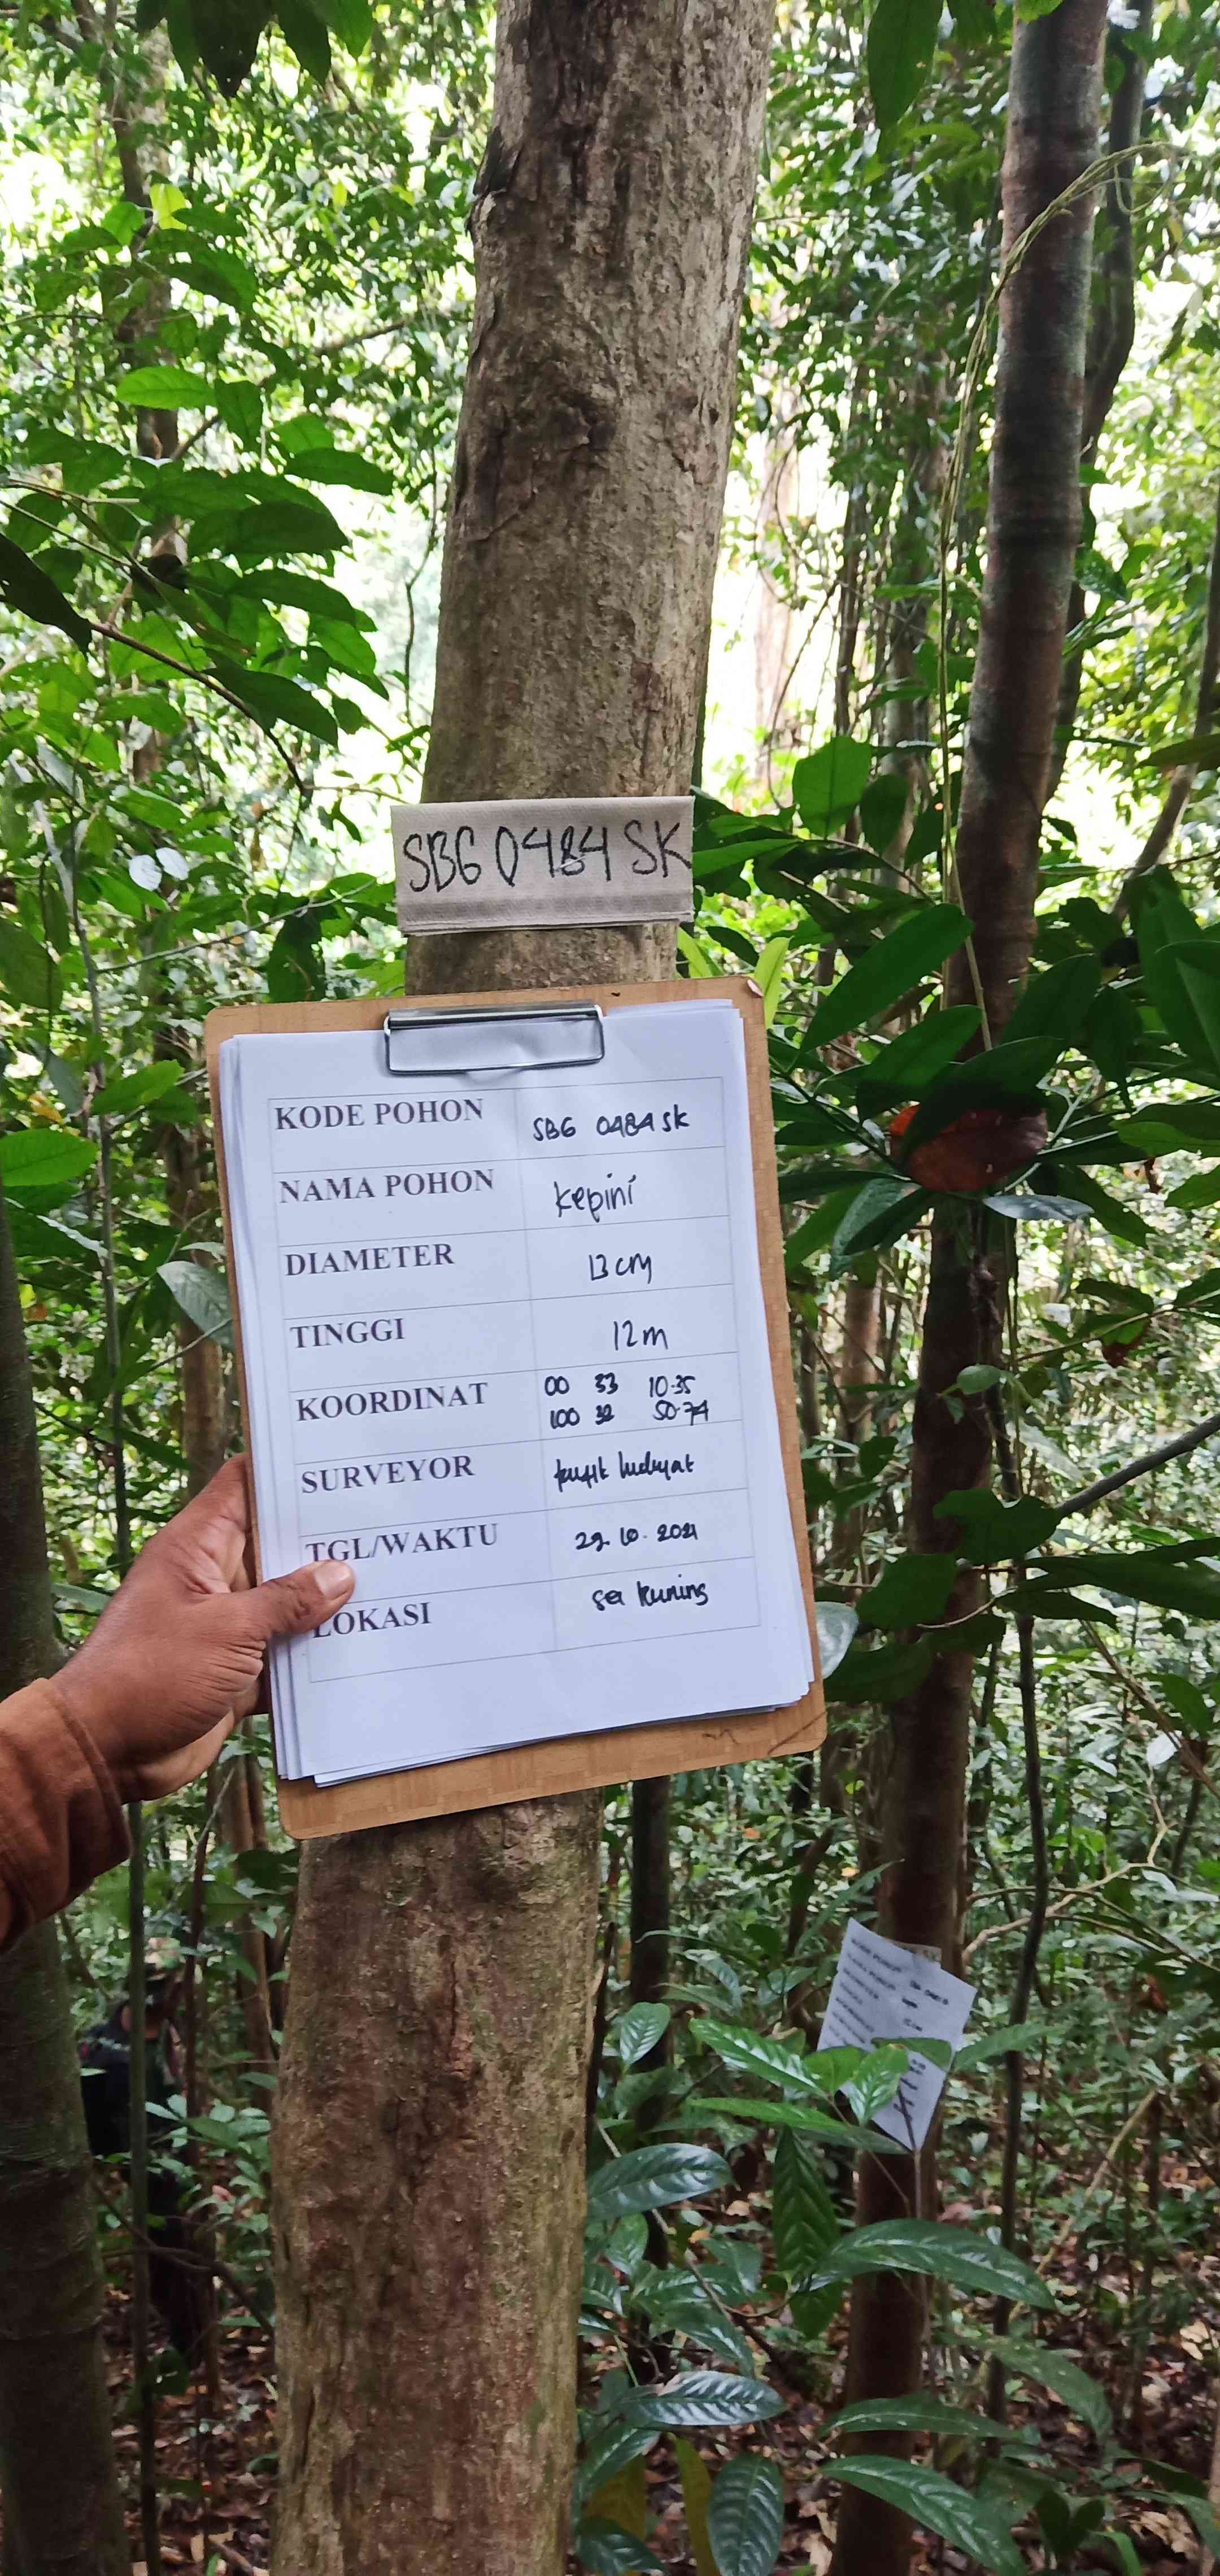 SBG 0484 SK
KODE POHON SBG 0484 SK
NAMA POHON Kepini
DIAMETER 13 cm
TINGGI 12 m
KOORDINAT 00 33 10.35
100 32 50.74
SURVEYOR hidayat
TGL/WAKTU 29. 10. 2021
LOKASI sei kuning